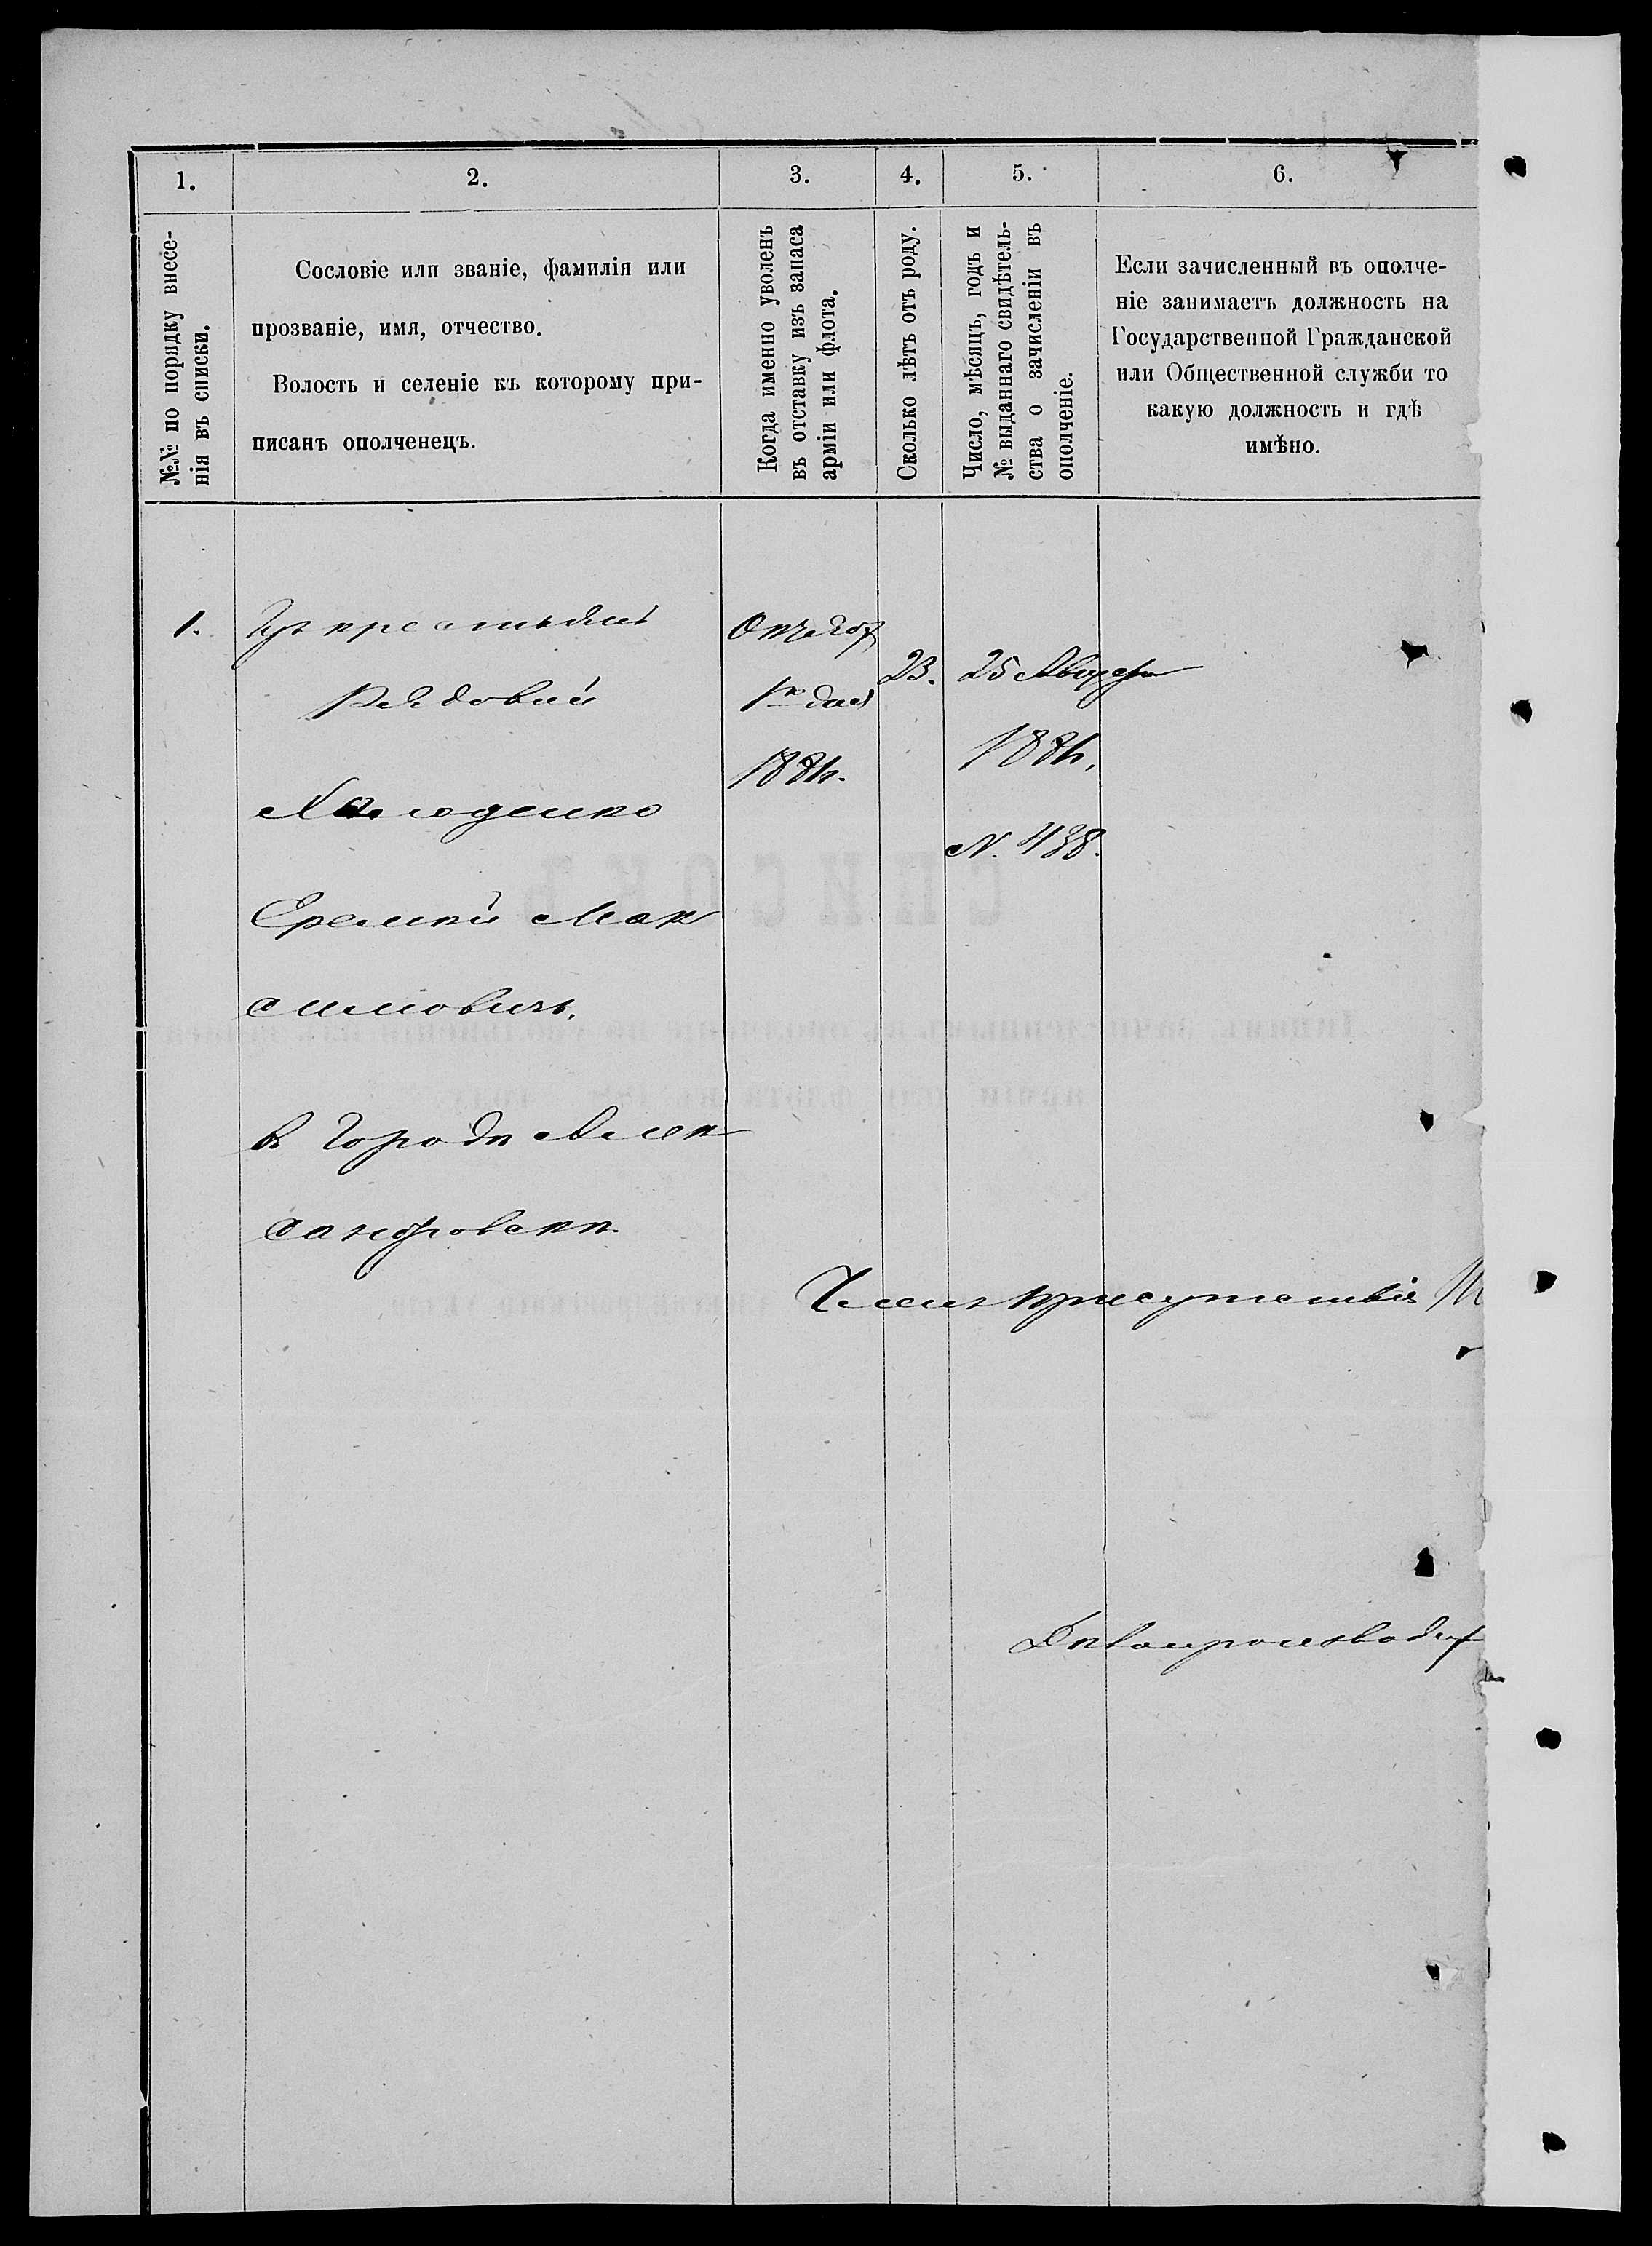 1.
2.
3.
4.
5.
6.
№№ по порядку внесе-
нія въ списки.
Сословіе или званіе, фамилія или
прозваніе, имя, отчество.
Волость и селеніе къ которому при-
писанъ ополченецъ.
Когда именно уволенъ
въ отставку изъ запаса
арміи или флота.
Сколько лѣтъ отъ роду.
Число, мѣсяцъ, годъ и
№ выданнаго свидѣтель-
ства о зачисленіи въ
ополченіе.
Если зачисленный въ ополче-
ніе занимаетъ должность на
Государственной Гражданской
или Общественной служби то
какую должность и гдѣ
имѣно.
1. Изъ крестьянъ
Рядовый
Холоденко
Еремѣй Мак
симовичъ.
въ Городѣ Алек
сандровскѣ.
188
23.
25 Августа
188
N. 438.
Членъ присутствія
Дѣлопроизводит
СПИСОКЪ